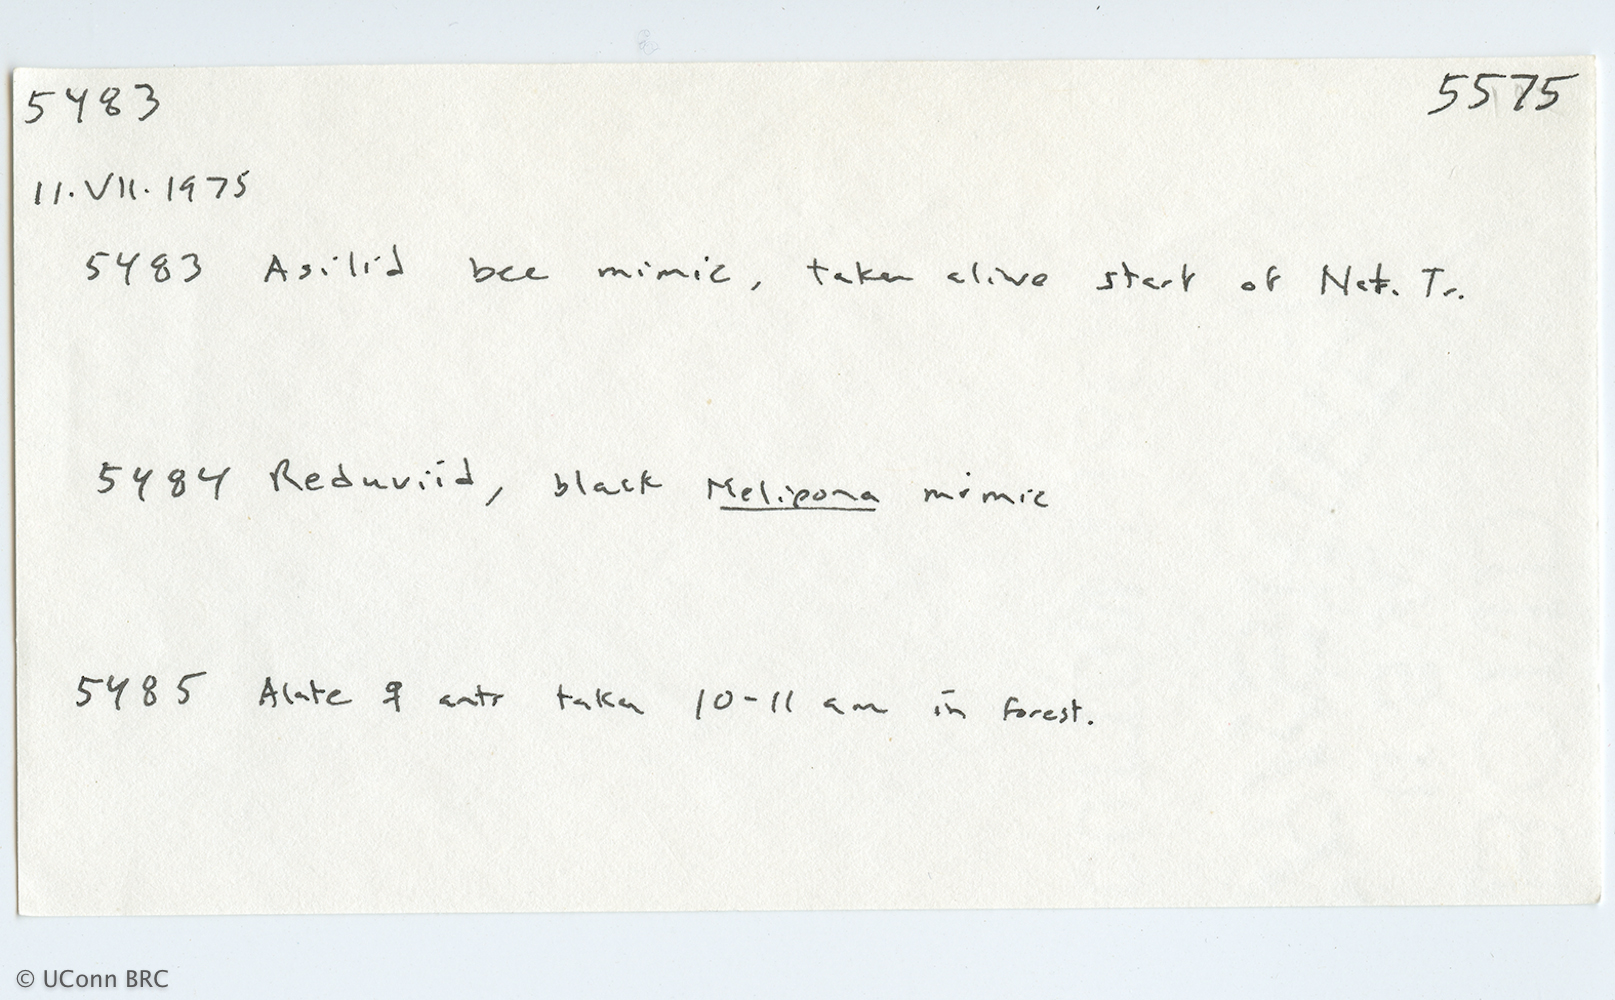 5483 5575
11.VII.1975
5483 Asilid bee mimic, taken alive start of Nat. Tr.
5484 Reduviid, black Melipona mimic
5485 Alate ♀ ants taken 10-11 am in forest.
© UConn BRC